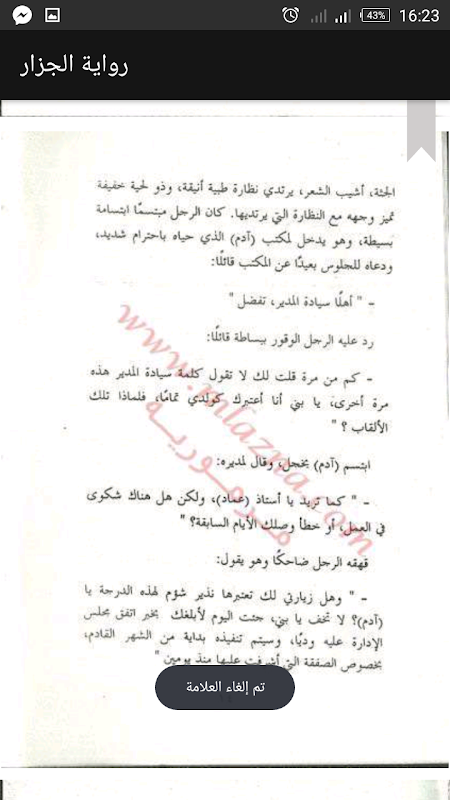 43% 16:23
رواية الجزار
الجثة، أشيب الشعر، يرتدي نظارة طبية أنيقة، وذو لحية خفيفة
تميز وجهه مع النظارة التي يرتديها. كان الرجل مبتسمًا ابتسامة
بسيطة، وهو يدخل لمكتب (آدم) الذي حياه باحترام شديد،
ودعاه للجلوس بعيدًا عن المكتب قائلًا:
- " أهلًا سيادة المدير، تفضل "
رد عليه الرجل الوقور ببساطة قائلًا:
- كم من مرة قلت لك لا تقول كلمة سيادة المدير هذه
مرة أخرى، يا بني أنا أعتبرك كولدي تمامًا، فلماذا تلك
الألقاب ؟ "
ابتسم (آدم) بخجل، وقال لمديره:
- " كما تريد يا أستاذ (عماد)، ولكن هل هناك شكوى
في العمل، أو خطأ وصلك الأيام السابقة؟ "
قهقه الرجل ضاحكًا وهو يقول:
- " وهل زيارتي لك تعتبرها نذير شؤم لهذه الدرجة يا
(آدم)؟ لا تخف يا بني، جئت اليوم لأبلغك بخبر اتفق مجلس
الإدارة عليه وديًا، وسيتم تنفيذه بداية من الشهر القادم،
بخصوص الصفقة التي أشرفت عليها منذ يومين "
www.mlazna.com
تم إلغاء العلامة